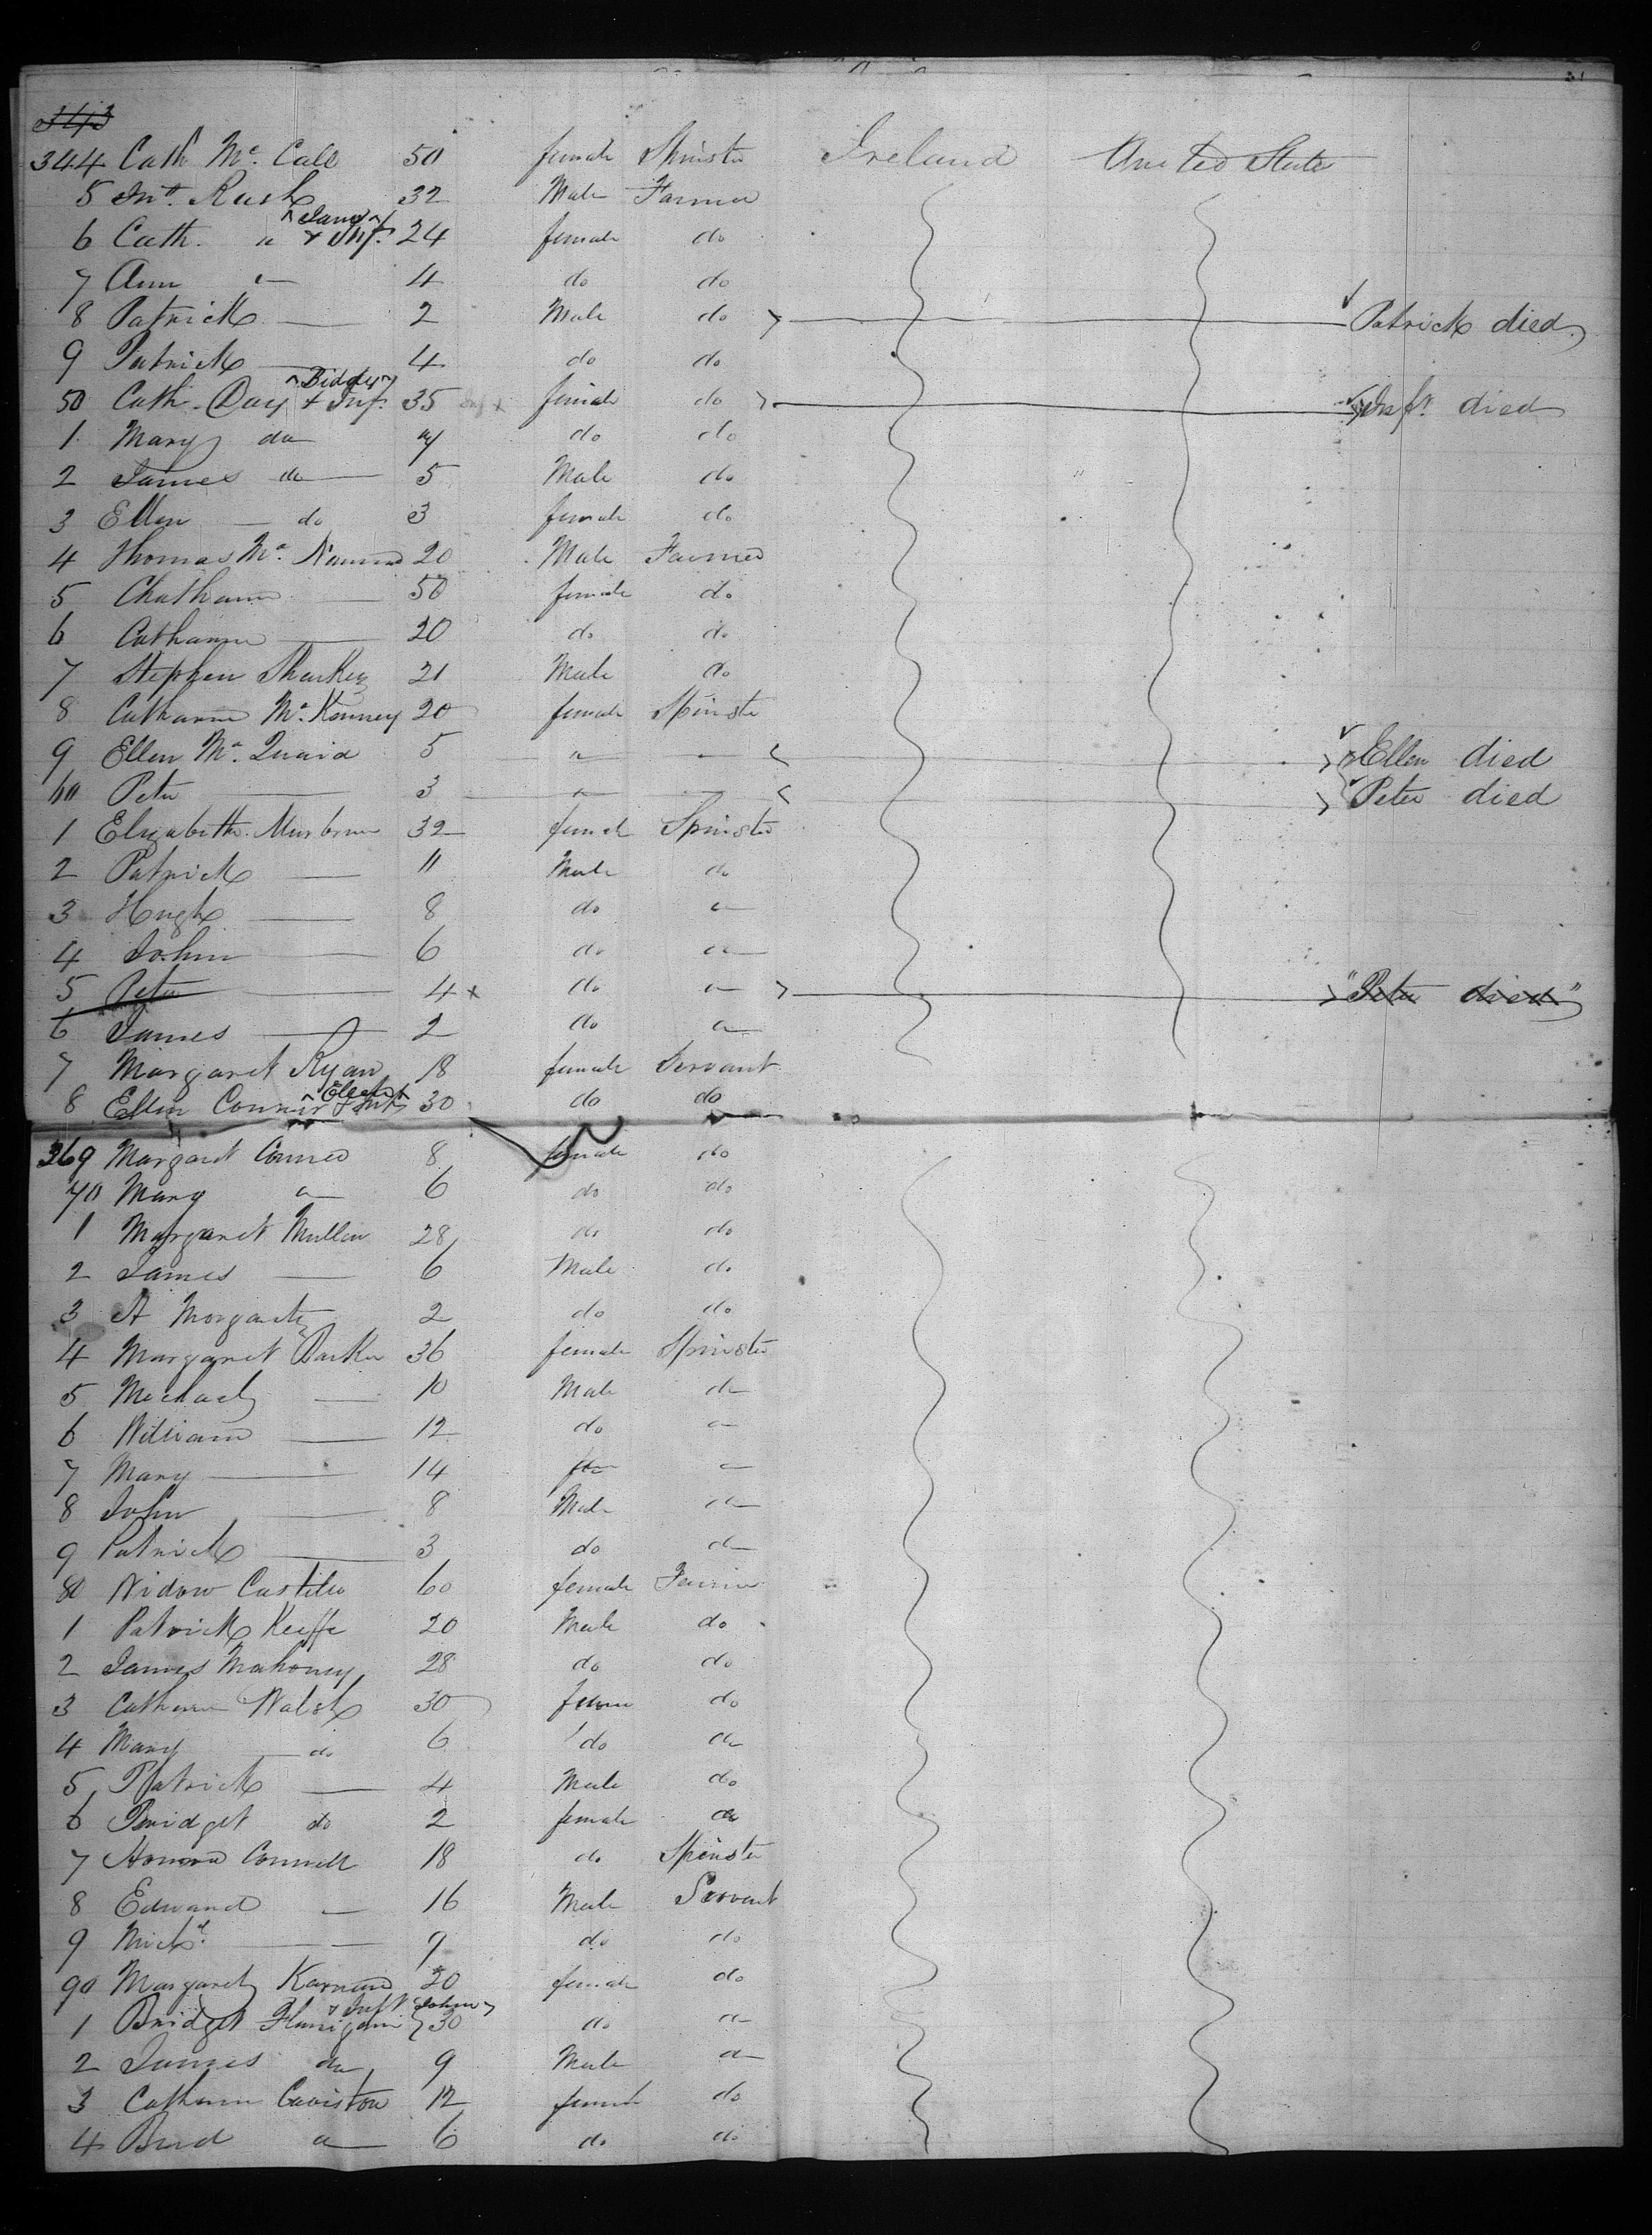 343
344 Cath Mc. Call 50 female Spinster Ireland United States
5 Jno. Rush 32 Male Farmer
6 Cath. " & Inf. 24 female do
7 Ann " 4 do do
8 Patrick — 2 Male do Patrick died
9 Patrick — 4 do do
^Biddy^
50 Cath. Day & Inf. 35 female do Inft. died
1 Mary do 7 do do
2 James do 5 Male do
3 Ellen — do 3 female do
4 Thomas Mc. 20 Male Farmer
5 — 50 female do
6 Catharine — 20 do do
7 Stephen Sharkey 21 Male do
8 Catharine Mc. Kenney 20 female Spinster
9 Ellen Mc. Quaid 5 " " Ellen died
60 Peter — 3 " " Peter died
1 Elizabeth 32 female Spinster
2 Patrick — 11 Male do
3 Hugh — 8 do "
4 John — 6 do "
5 Peter — 4 x do " "Peter died"
6 James — 2 do "
7 Margaret Ryan 18 female Servant
8 Ellen Connor & Inft 30 do do
369 Margaret Connor 8 female do
70 Mary " 6 do do
1 Margaret Mullin 28 do do
2 James — 6 Male do
3 2 do do
4 Margaret Barker 36 female Spinster
5 Michael — 10 Male do
6 William — 12 do "
7 Mary — 14 "
8 John — 8 Male do
9 Patrick — 3 do do
80 Widow 60 female Farmer
1 Patrick Keeffe 20 Male do
2 James Mahoney 28 do do
3 Catharine Walsh 30 female do
4 Mary — do 6 do do
5 Patrick — 4 Male do
6 Bridget do 2 female do
7 Honora Connell 18 do Spinster
8 Edward — 16 Male Servant
9 Michl. — 9 do do
90 Margaret 20 female do
& Inft <John>
1 Bridget Flanigan } 30 do do
2 James do 9 Male do
3 Catharine Caviston 12 female do
4 " 6 do do